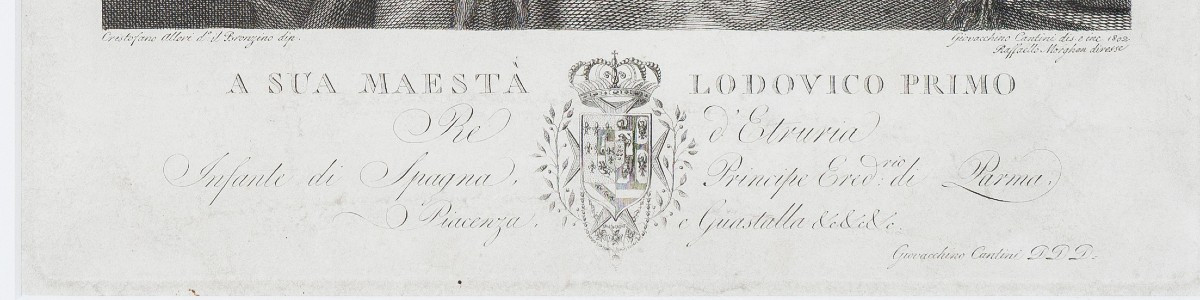 Cristofano Allori d.º il Bronzino dip.
Giovacchino Cantini dis. e inc. 1802
Raffaello Morghen diresse
A SUA MAESTÀ LODOVICO PRIMO
Re d'Etruria
Infante di Spagna, Principe Ered.rio di Parma,
Piacenza, e Guastalla &c &c &c.
Giovacchino Cantini D D D.